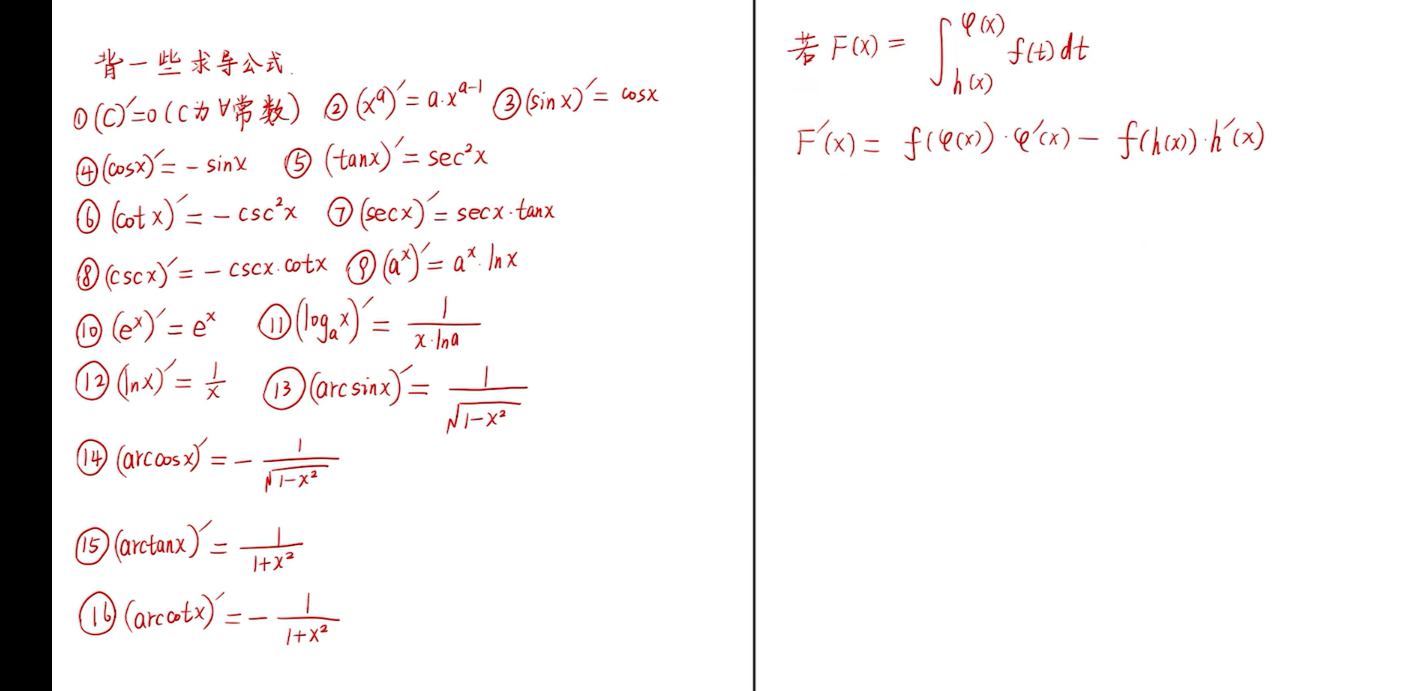 背一些求导公式.
①(C)′=0(C为∀常数) ②(xᵃ)′=a·xᵃ⁻¹ ③(sinx)′=cosx
④(cosx)′=-sinx ⑤(tanx)′=sec²x
⑥(cotx)′=-csc²x ⑦(secx)′=secx·tanx
⑧(cscx)′=-cscx·cotx ⑨(aˣ)′=aˣ·lnx
⑩(eˣ)′=eˣ ⑪(logₐx)′=1/(x·lna)
⑫(lnx)′=1/x ⑬(arcsinx)′=1/√(1-x²)
⑭(arccosx)′=-1/√(1-x²)
⑮(arctanx)′=1/(1+x²)
⑯(arccotx)′=-1/(1+x²)
若F(x)=∫_{h(x)}^{φ(x)} f(t)dt
F′(x)=f(φ(x))·φ′(x)-f(h(x))·h′(x)